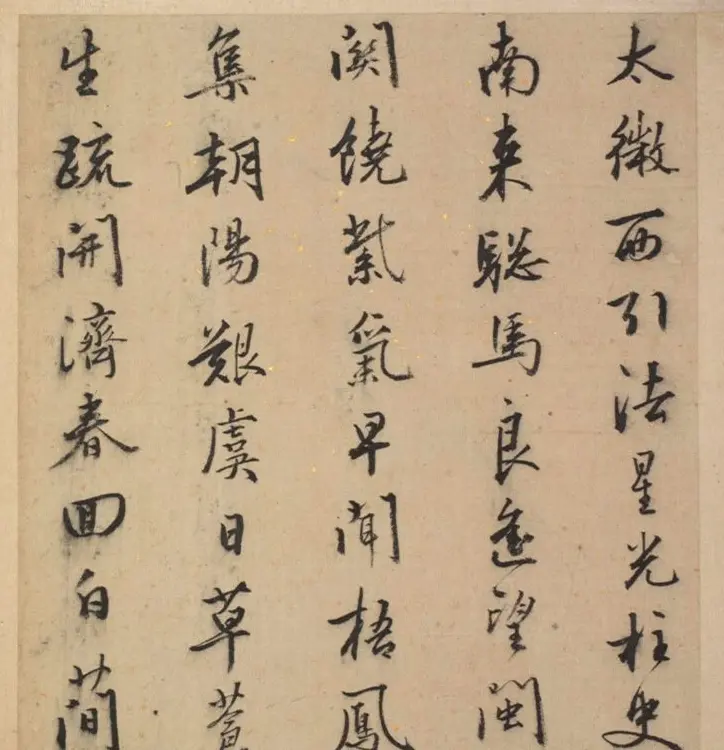 太微西引法星光柱史
南来驄馬良遙望閩
關饒紫氣早聞梧鳳
集朝陽艱虞日草蒼
生疏開濟春回白簡